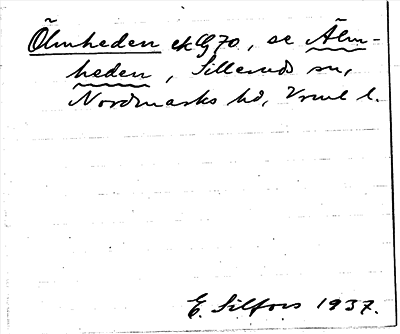 Ölmheden ekG70, se Älm-
heden, Silleruds sn,
Nordmarks hd, Vrml l.
E. Silfors 1937.